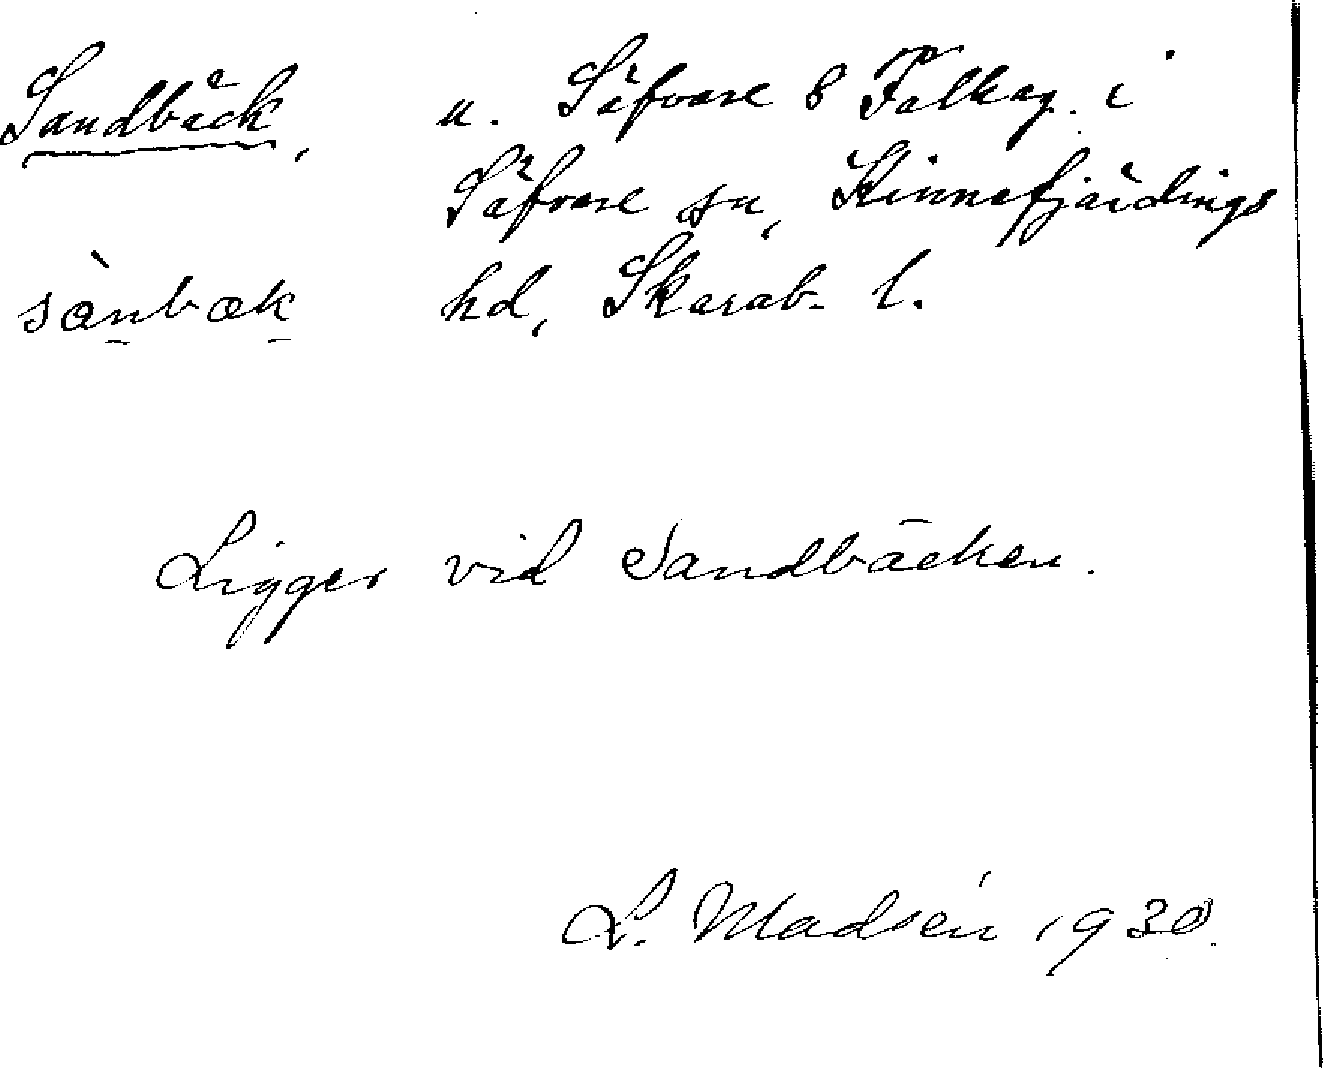 Sandbäck, u. Säfvare 8 Falkäg. i
Säfvare sn, Kinnefjärdings
sànbæk hd, Skarab. l.
Ligger vid Sandbäcken.
L. Madsén 1930.